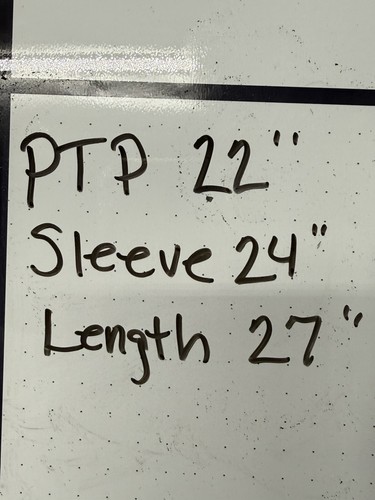 PTP 22"
Sleeve 24"
Length 27"